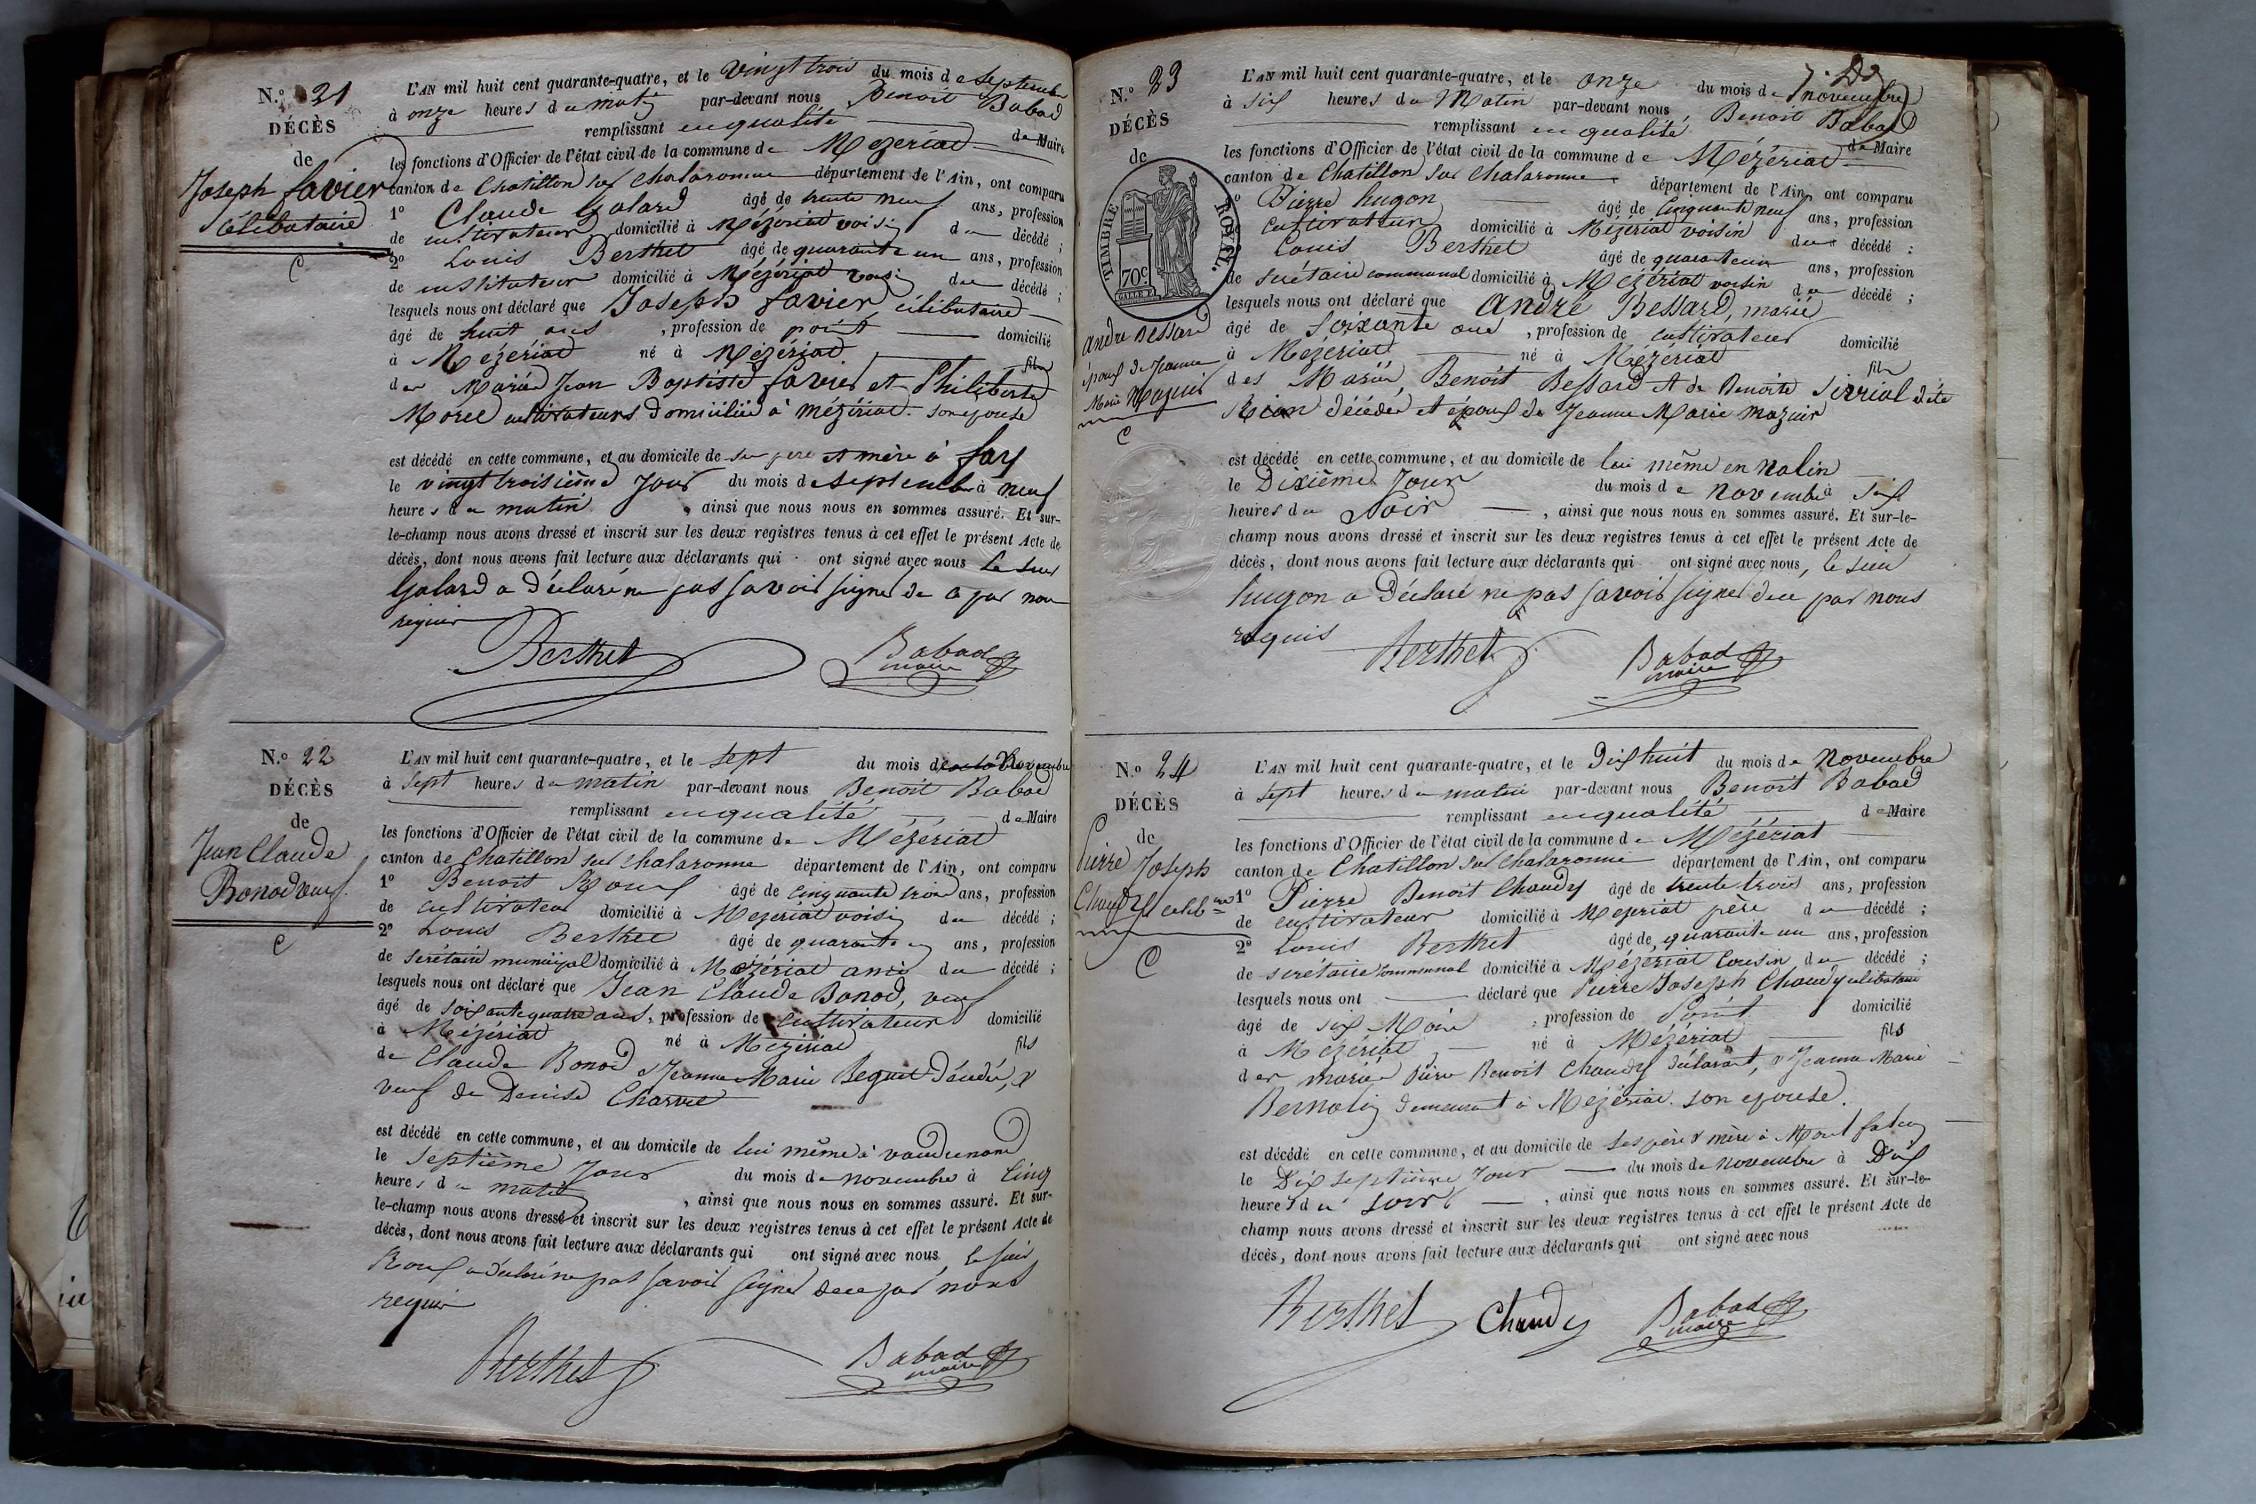 N.o 21
DÉCÈS
de
Joseph favier
Célibataire
C
L'AN mil huit cent quarante-quatre, et le vingt trois du mois de septembre
à onze heures du matin par-devant nous Benoit Babad
remplissant en qualité de Maire
les fonctions d'Officier de l'état civil de la commune de Mezeriat
canton de Chatillon sur chalaronne département de l'Ain, ont comparu
1o Claude Galard âgé de trente neuf ans, profession
de cultivateur domicilié à Mézériat voisin du décédé ;
2o Louis Berthet âgé de quarante un ans, profession
de instituteur domicilié à Mézériat voisin du décédé ;
lesquels nous ont déclaré que Joseph favier célibataire
âgé de huit ans , profession de point domicilié
à Mézériat né à Mézériat fils
des Mariés Jean Baptiste favier et Philiberte
Morel cultivateurs domiciliés à mézériat son epouse
est décédé en cette commune, et au domicile de ses pere et mère à fay
le vingt troisième Jour du mois de septembre à neuf
heures du matin , ainsi que nous nous en sommes assuré. Et sur-
le-champ nous avons dressé et inscrit sur les deux registres tenus à cet effet le présent Acte de
décès, dont nous avons fait lecture aux déclarants qui ont signé avec nous le sieur
Galard a déclaré ne pas savoir signer de ce par nous
requis
Berthet Babad
maire
N.o 22
DÉCÈS
de
Jean Claude
Bonod veuf
C
L'AN mil huit cent quarante-quatre, et le sept du mois de Novembre
à sept heures du matin par-devant nous Benoit Babad
remplissant en qualité de Maire
les fonctions d'Officier de l'état civil de la commune de Mézériat
canton de Chatillon sur chalaronne département de l'Ain, ont comparu
1o Benoit âgé de cinquante trois ans, profession
de cultivateur domicilié à Mezeriat voisin du décédé ;
2o Louis Berthet âgé de quarante un ans, profession
de secrétaire municipal domicilié à Mézériat ami du décédé ;
lesquels nous ont déclaré que Jean Claude Bonod, veuf
âgé de soixante quatre ans, profession de cultivateur domicilié
à Mézériat né à Mézériat fils
de Claude Bonod & Jeanne Marie Beguet décédés, &
veuf de Denise Charvet
est décédé en cette commune, et au domicile de lui même à
le septième Jour du mois de novembre à cinq
heures du matin , ainsi que nous nous en sommes assuré. Et sur-
le-champ nous avons dressé et inscrit sur les deux registres tenus à cet effet le présent Acte de
décès, dont nous avons fait lecture aux déclarants qui ont signé avec nous le sieur
a déclaré ne pas savoir signer de ce par nous
requis
Berthet Babad
maire
N.o 23
DÉCÈS
de
TIMBRE ROYAL.
70c.
andré Bessard
époux de Jeanne
Marie Mazuir
C
L'AN mil huit cent quarante-quatre, et le onze du mois de novembre
à six heures du Matin par-devant nous Benoit Babad
remplissant en qualité de Maire
les fonctions d'Officier de l'état civil de la commune de Mézériat
canton de Chatillon sur Chalaronne département de l'Ain, ont comparu
1o Pierre hugon âgé de cinquante neuf ans, profession
cultivateur domicilié à Mézériat voisin du décédé ;
Louis Berthet âgé de quarante un ans, profession
de secrétaire communal domicilié à Mézériat voisin du décédé ;
lesquels nous ont déclaré que andré Bessard, marié
âgé de soixante ans , profession de cultivateur domicilié
à Mézériat né à Mézériat fils
des Mariés Benoit Bessard et de Benoite
décédés et époux de Jeanne Marie mazuir
est décédé en cette commune, et au domicile de lui même en
le Dixième Jour du mois de novembre à six
heures du Soir , ainsi que nous nous en sommes assuré. Et sur-le-
champ nous avons dressé et inscrit sur les deux registres tenus à cet effet le présent Acte de
décès, dont nous avons fait lecture aux déclarants qui ont signé avec nous, le sieur
hugon a déclaré ne pas savoir signer de ce par nous
requis
Berthet Babad
maire
N.o 24
DÉCÈS
de
Pierre Joseph
Chaudy celibre
C
L'AN mil huit cent quarante-quatre, et le dix huit du mois de Novembre
à sept heures du matin par-devant nous Benoit Babad
remplissant en qualité de Maire
les fonctions d'Officier de l'état civil de la commune de Mézériat
canton de Chatillon sur chalaronne département de l'Ain, ont comparu
1o Pierre Benoit Chaudy âgé de trente trois ans, profession
de cultivateur domicilié à Mezeriat père du décédé ;
2o Louis Berthet âgé de quarante un ans, profession
de secrétaire communal domicilié à Mézériat Cousin du décédé ;
lesquels nous ont déclaré que Pierre Joseph Chaudy célibataire
âgé de six Mois , profession de Point domicilié
à Mézériat né à Mézériat fils
des mariés Pierre Benoit Chaudy déclarant, & Jeanne Marie
demeurant à Mézériat son epouse.
est décédé en cette commune, et au domicile de ses père & mère à Mont
le Dix septième Jour du mois de novembre à Dix
heures du soir , ainsi que nous nous en sommes assuré. Et sur-le-
champ nous avons dressé et inscrit sur les deux registres tenus à cet effet le présent Acte de
décès, dont nous avons fait lecture aux déclarants qui ont signé avec nous
Berthet Chaudy Babad
maire